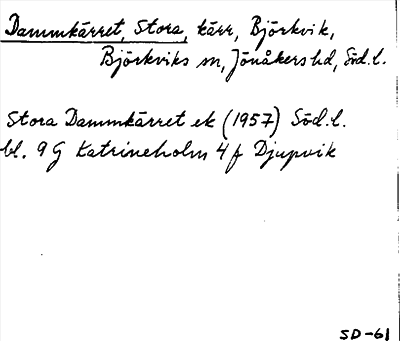 Dammkärret, Stora, kärr, Björkvik,
Björkviks sn, Jönåkers hd, Söd.l.
Stora Dammkärret ek (1957) Söd.l.
bl. 9 G Katrineholm 4 f Djupvik
SD-61